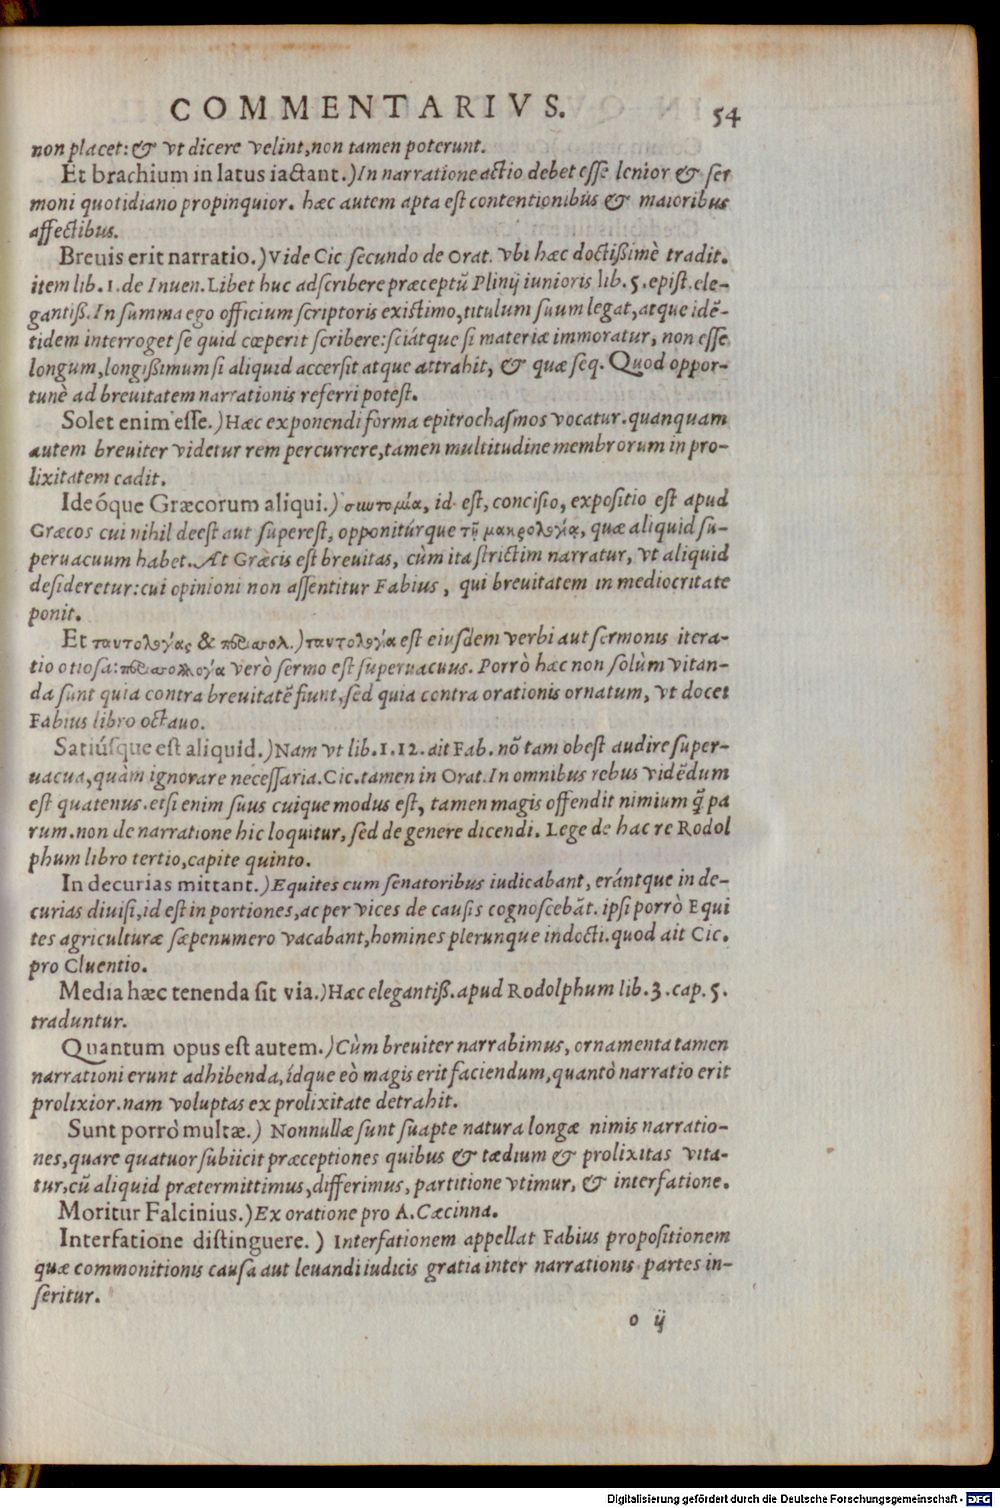 COMMENTARIVS. 54
non placet: & vt dicere velint, non tamen poterunt.
Et brachium in latus iactant.) In narratione actio debet esse lenior & ser
moni quotidiano propinquior. hæc autem apta est contentionibus & maioribus
affectibus.
Breuis erit narratio.) Vide Cic secundo de Orat. vbi hæc doctißimè tradit.
item lib. 1. de Inuen. Libet huc adscribere præceptũ Plinij iunioris lib. 5. epist. ele-
gantiß. In summa ego officium scriptoris existimo, titulum suum legat, atque idẽ-
tidem interroget se quid cœperit scribere: sciátque si materiæ immoratur, non esse
longum, longißimum si aliquid accersit atque attrahit, & quæ seq. Quod oppor-
tunè ad breuitatem narrationis referri potest.
Solet enim esse.) Hæc exponendi forma epitrochasmos vocatur. quanquam
autem breuiter videtur rem percurrere, tamen multitudine membrorum in pro-
lixitatem cadit.
Ideóque Græcorum aliqui.) συντομία, id est, concisio, expositio est apud
Græcos cui nihil deest aut superest, opponitúrque τῇ μακρολογίᾳ, quæ aliquid su-
peruacuum habet. At Græcis est breuitas, cùm ita strictim narratur, vt aliquid
desideretur: cui opinioni non assentitur Fabius, qui breuitatem in mediocritate
ponit.
Et ταυτολογίας & περισσολ.) ταυτολογία est eiusdem verbi aut sermonis itera-
tio otiosa: περισσολογία verò sermo est superuacuus. Porrò hæc non solùm vitan-
da sunt quia contra breuitatẽ fiunt, sed quia contra orationis ornatum, vt docet
Fabius libro octauo.
Satiúsque est aliquid.) Nam vt lib. 1. 12. ait Fab. nõ tam obest audire super-
uacua, quàm ignorare necessaria. Cic. tamen in Orat. In omnibus rebus vidẽdum
est quatenus. etsi enim suus cuique modus est, tamen magis offendit nimium q̃ pa
rum. non de narratione hic loquitur, sed de genere dicendi. Lege de hac re Rodol
phum libro tertio, capite quinto.
In decurias mittant.) Equites cum senatoribus iudicabant, erántque in de-
curias diuisi, id est in portiones, ac per vices de causis cognoscebãt. ipsi porrò Equi
tes agriculturæ sæpenumero vacabant, homines plerunque indocti. quod ait Cic.
pro Cluentio.
Media hæc tenenda sit via.) Hæc elegantiß. apud Rodolphum lib. 3. cap. 5.
traduntur.
Quantum opus est autem.) Cùm breuiter narrabimus, ornamenta tamen
narrationi erunt adhibenda, ídque eò magis erit faciendum, quantò narratio erit
prolixior. nam voluptas ex prolixitate detrahit.
Sunt porrò multæ.) Nonnullæ sunt suapte natura longæ nimis narratio-
nes, quare quatuor subiicit præceptiones quibus & tædium & prolixitas vita-
tur, cũ aliquid prætermittimus, differimus, partitione vtimur, & interfatione.
Moritur Falcinius.) Ex oratione pro A. Cæcinna.
Interfatione distinguere.) Interfationem appellat Fabius propositionem
quæ commonitionis causa aut leuandi iudicis gratia inter narrationis partes in-
seritur.
o ij
Digitalisierung gefördert durch die Deutsche Forschungsgemeinschaft - DFG